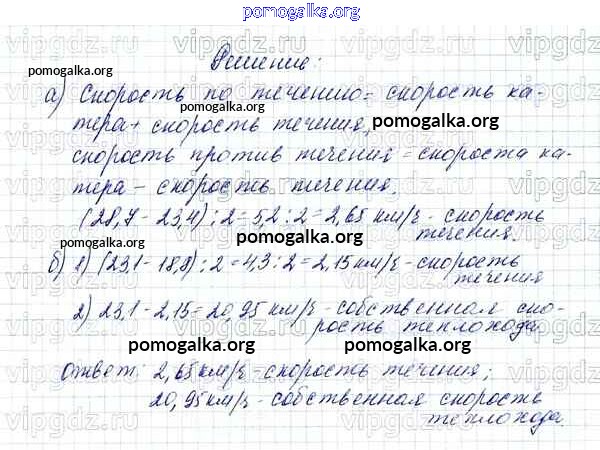 pomogalka.org
Решение:
pomogalka.org
а) Скорость по течению = скорость ка-
тера + скорость течения,
pomogalka.org
скорость против течения = скорости ка-
тера - скорость течения.
pomogalka.org pomogalka.org
(28,7 - 23,4) : 2 = 5,2 : 2 = 2,65 км/ч - скорость
течения.
pomogalka.org
б) 1) (23,1 - 18,8) : 2 = 4,3 : 2 = 2,15 км/ч - скорость
течения
2) 23,1 - 2,15 = 20,95 км/ч - собственная ско-
рость теплохода
pomogalka.org pomogalka.org
Ответ: 2,65 км/ч - скорость течения;
20,95 км/ч - собственная скорость
теплохода.
pomogalka.org pomogalka.org